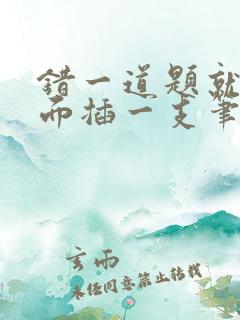 错一道题就
而插一支笔
玄雨
未经同意禁止转载